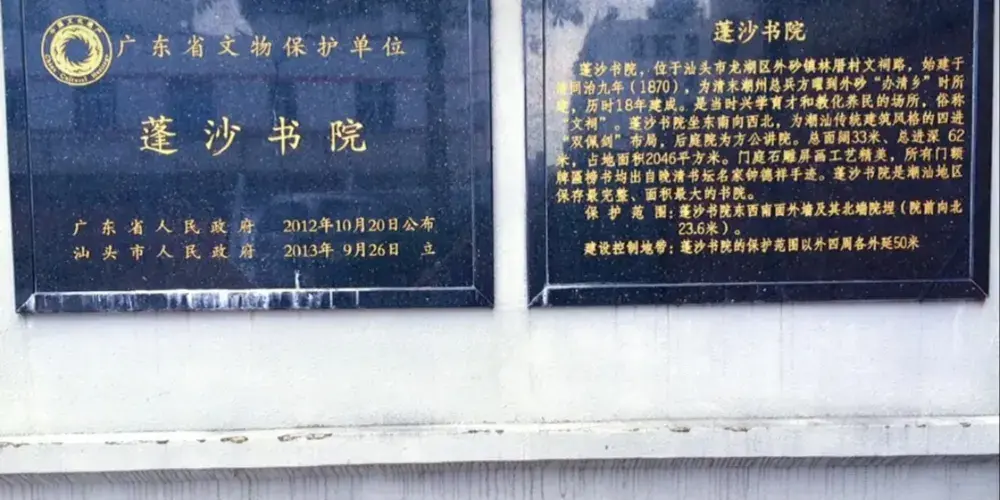 广东省文物保护单位
蓬沙书院
广东省人民政府 2012年10月20日公布
汕头市人民政府 2013年 9月26日 立
蓬沙书院
蓬沙书院，位于汕头市龙湖区外砂镇林厝村文祠路，始建于
同治九年（1870），为清末潮州总兵方曜到外砂“办清乡”时所
，历时18年建成。是当时兴学育才和教化养民的场所，俗称
文祠”。蓬沙书院坐东南向西北，为潮汕传统建筑风格的四进
“双佩剑”布局，后庭院为方公讲院。总面阔33米、总进深 62
米，占地面积2046平方米。门庭石雕屏画工艺精美，所有门额
牌匾榜书均出自晚清书坛名家钟德祥手迹。蓬沙书院是潮汕地区
保存最完整、面积最大的书院。
保 护 范 围：蓬沙书院东西南面外墙及其北墙院埕（院前向北
23.6米）。
建设控制地带：蓬沙书院的保护范围以外四周各外延50米